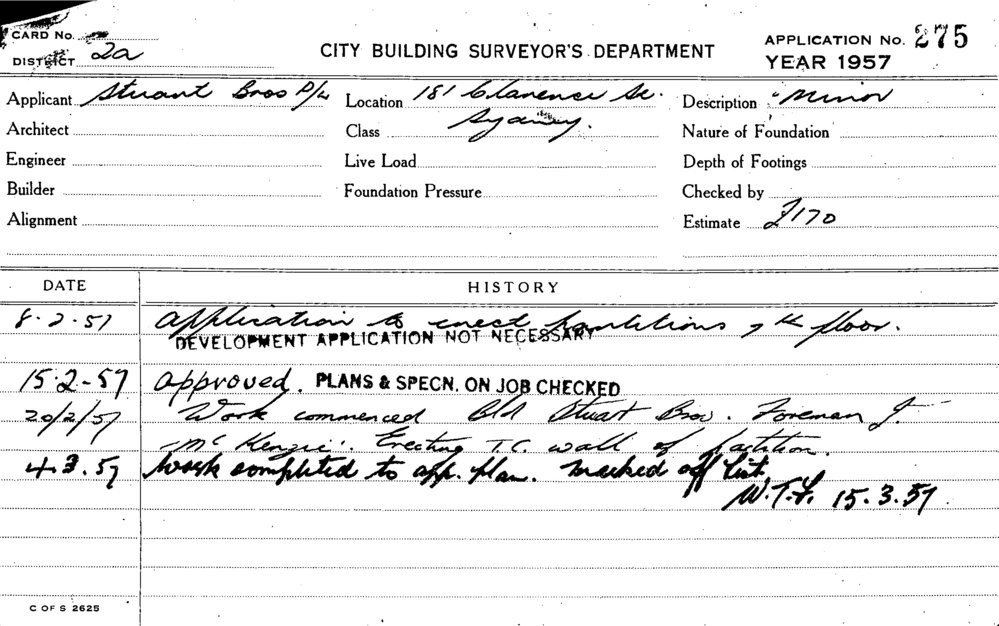 CARD No.
DISTRICT 2a
CITY BUILDING SURVEYOR'S DEPARTMENT
APPLICATION No. 275
YEAR 1957
Applicant Stuart Bros P/L
Location 181 Clarence St.
Sydney.
Description Minor
Architect
Class
Nature of Foundation
Engineer
Live Load
Depth of Footings
Builder
Foundation Pressure
Checked by
Alignment
Estimate £170
DATE
HISTORY
8.2.57 Application to erect partitions 7th floor.
DEVELOPMENT APPLICATION NOT NECESSARY
15.2-57 Approved. PLANS & SPECN. ON JOB CHECKED
20/2/57 Work commenced Bld Stuart Bros. Foreman J.
McKenzie. Erecting T.C. wall of partition.
4.3.57 Work completed to app. plan. Marked off list.
W.T.F. 15.3.57
C OF S 2625